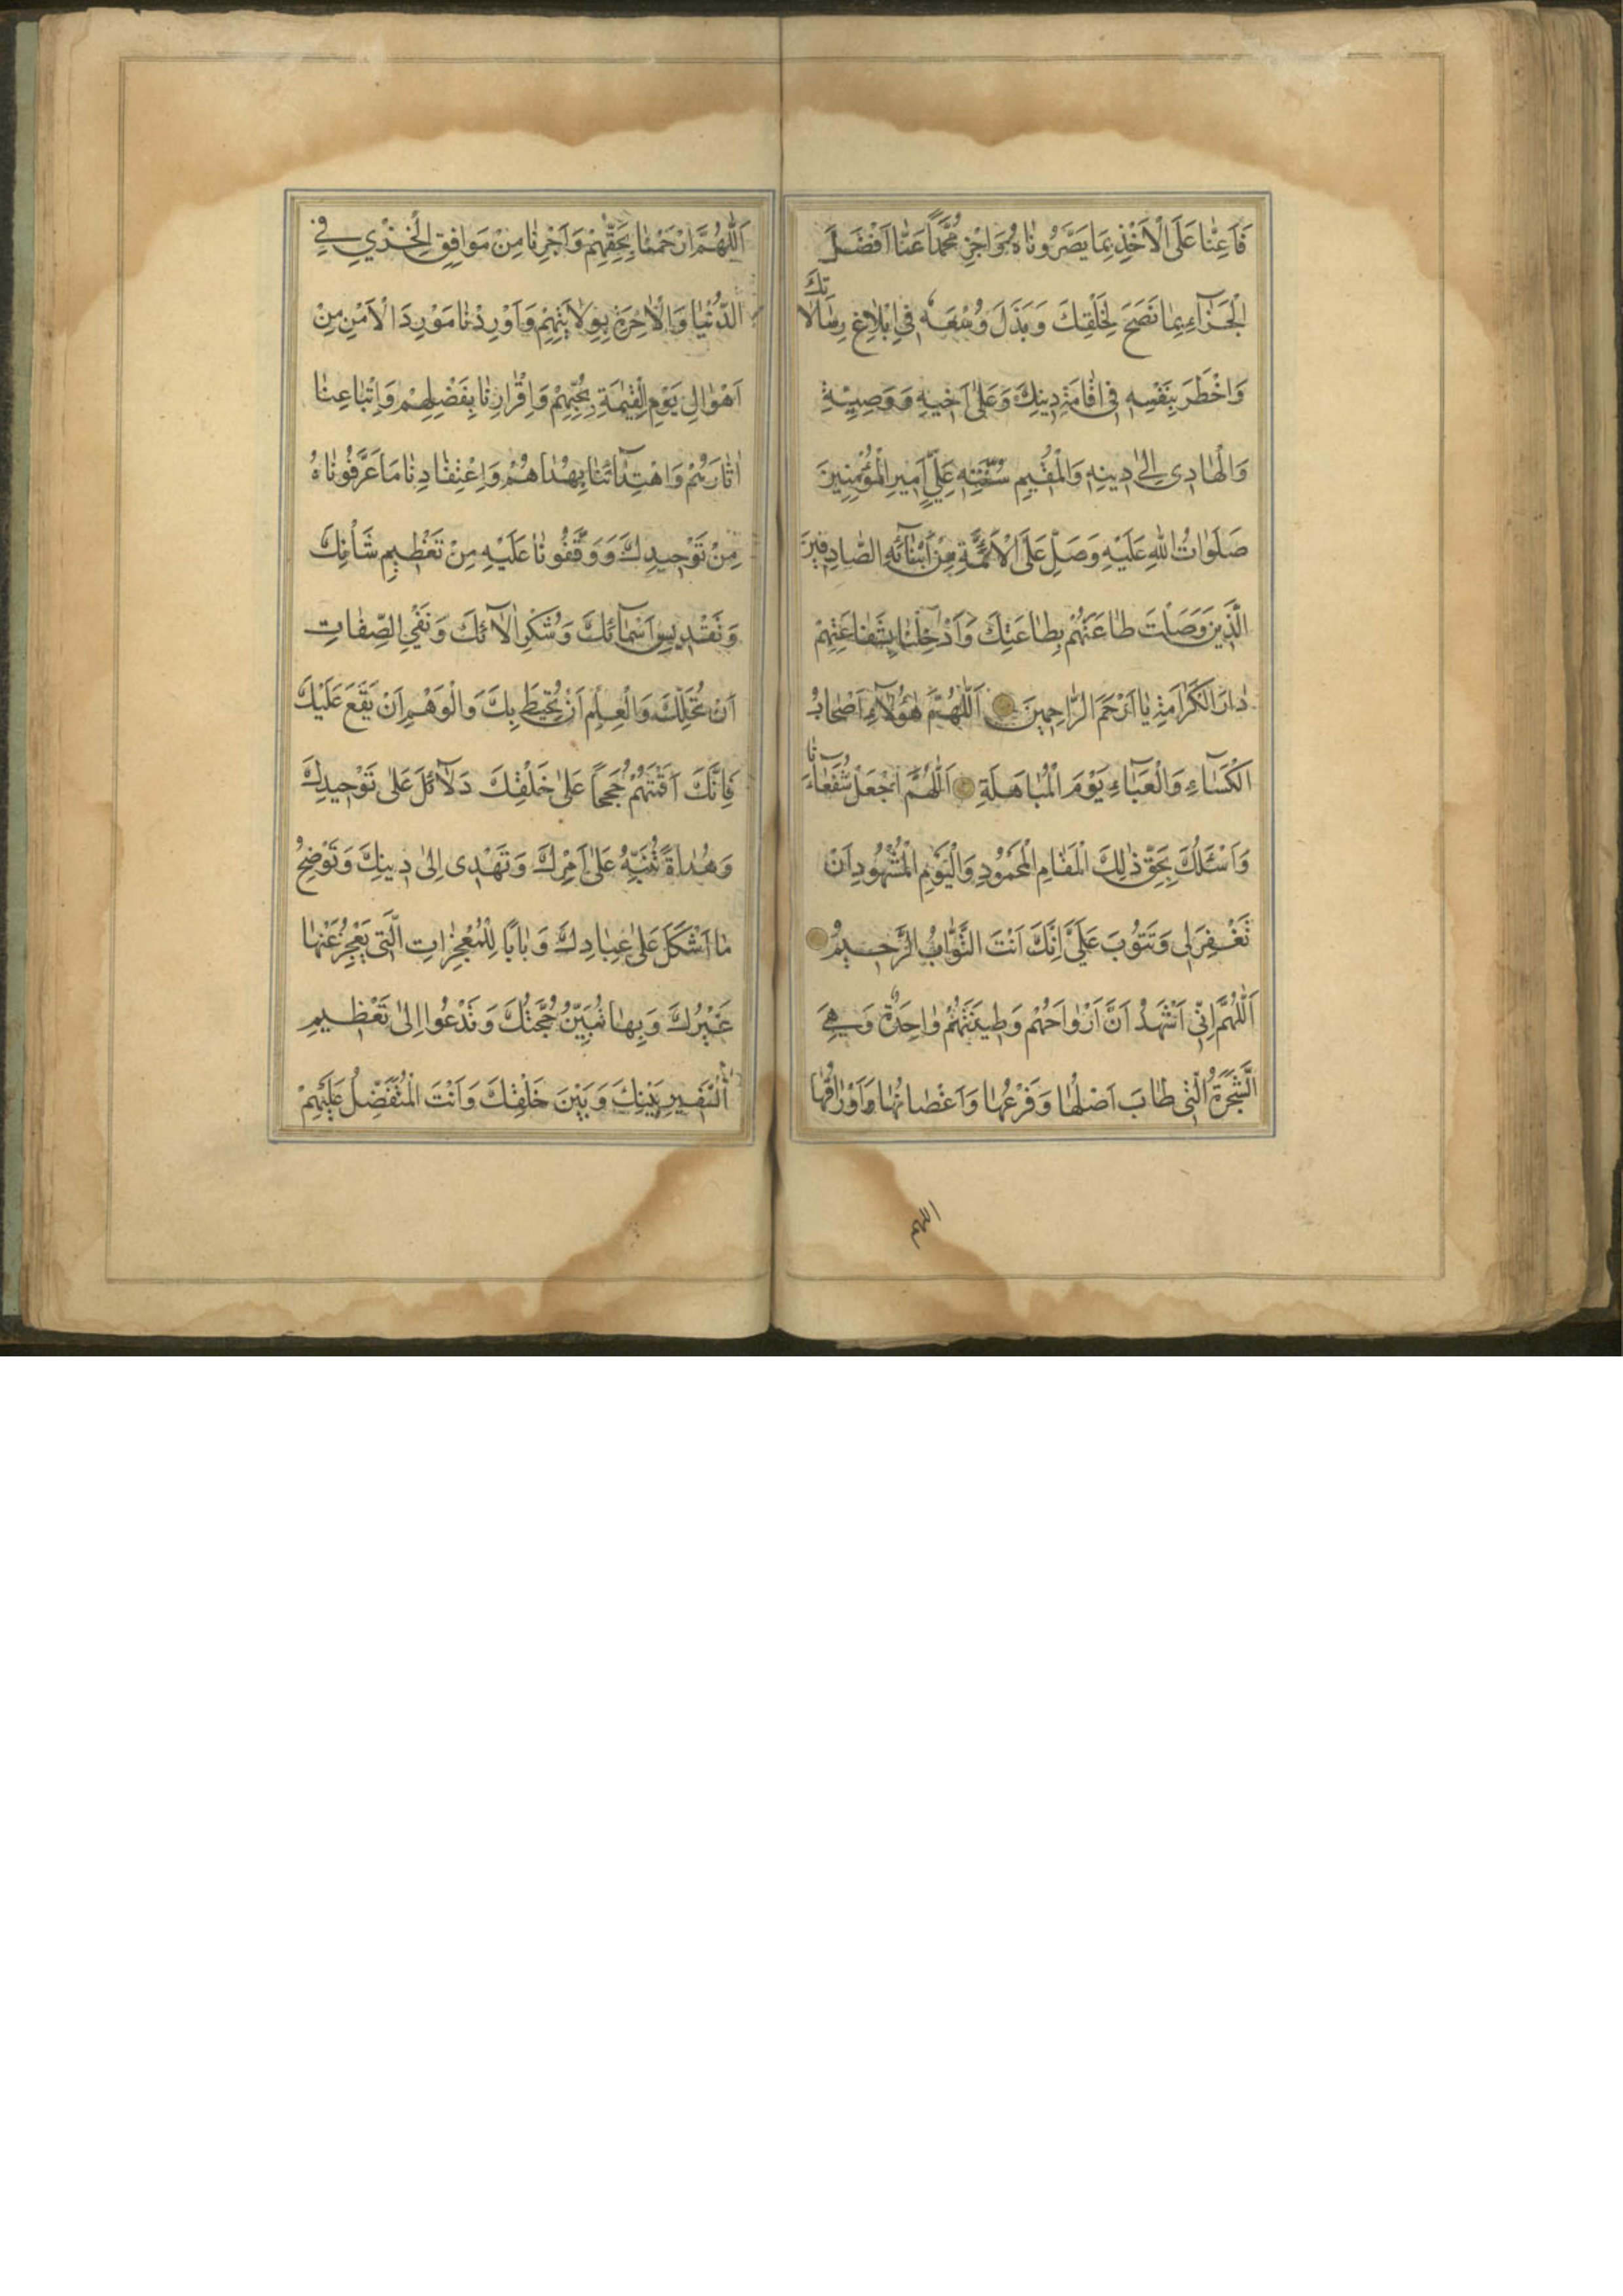 فَاَعِنّٰا عَلَى الْاَخْذِ بِمٰا بَصَّرُونٰاهُ وَاجْزِ مُحَمَّداً عَنّٰا اَفْضَلَ
الْجَزٰٓاءِ بِمٰا نَصَحَ لِخَلْقِكَ وَبَذَلَ وُسْعَهُ فِي اِبْلٰاغِ رِسٰالٰاتِكَ
وَاَخْطَرَ بِنَفْسِهِ فِي اِقٰامَةِ دِينِكَ وَعَلىٰ اَخِيهِ وَوَصِيِّهِ
وَالْهٰادِى اِلىٰ دِينِهِ وَالْمُقِيمِ سُنَّتِهِ عَلِيٍّ اَمِيرِ الْمُؤْمِنِينَ
صَلَوٰاتُ اللهِ عَلَيْهِ وَصَلِّ عَلَى الْاَئِمَّةِ مِنْ اَبْنٰآئِهِ الصّٰادِقِينَ
الَّذِينَ وَصَلْتَ طٰاعَتَهُمْ بِطٰاعَتِكَ وَاَدْخِلْنٰا بِشَفٰاعَتِهِمْ
دٰارَ الْكَرٰامَةِ يٰا اَرْحَمَ الرّٰاحِمِينَ اَللّٰهُمَّ هٰؤُلٰآءِ اَصْحٰابُ
الْكِسٰٓاءِ وَالْعَبٰٓاءِ يَوْمَ الْمُبٰاهَلَةِ اَللّٰهُمَّ اجْعَلْ شُفَعٰآءَنٰا
وَاَسْئَلُكَ بِحَقِّ ذٰلِكَ الْمَقٰامِ الْمَحْمُودِ وَالْيَوْمِ الْمَشْهُودِ اَنْ
تَغْفِرَ لِى وَتَتُوبَ عَلَيَّ اِنَّكَ اَنْتَ التَّوّٰابُ الرَّحِيمُ
اَللّٰهُمَّ اِنِّى اَشْهَدُ اَنَّ اَرْوٰاحَهُمْ وَطِينَتَهُمْ وٰاحِدَةٌ وَهِيَ
الشَّجَرَةُ الَّتِى طٰابَ اَصْلُهٰا وَفَرْعُهٰا وَاَغْصٰانُهٰا وَاَوْرٰاقُهٰا
اللهم
اَللّٰهُمَّ ارْحَمْنٰا بِحَقِّهِمْ وَاَجِرْنٰا مِنْ مَوٰاقِفِ الْخِزْيِ فِي
الدُّنْيٰا وَالْاٰخِرَةِ بِوِلٰايَتِهِمْ وَاَوْرِدْنٰا مَوْرِدَ الْاَمْنِ مِنْ
اَهْوٰالِ يَوْمِ الْقِيٰمَةِ بِحُبِّهِمْ وَاِقْرٰارِنٰا بِفَضْلِهِمْ وَاتِّبٰاعِنٰا
اٰثٰارَهُمْ وَاهْتِدٰآئِنٰا بِهُدٰاهُمْ وَاعْتِقٰادِنٰا مٰا عَرَّفُونٰاهُ
مِنْ تَوْحِيدِكَ وَوَقَّفُونٰا عَلَيْهِ مِنْ تَعْظِيمِ شَأْنِكَ
وَتَقْدِيسِ اَسْمٰآئِكَ وَشُكْرِ اٰلٰآئِكَ وَنَفْيِ الصِّفٰاتِ
اَنْ تَحُلَّكَ وَالْعِلْمِ اَنْ يُحِيطَ بِكَ وَالْوَهْمِ اَنْ يَقَعَ عَلَيْكَ
فَاِنَّكَ اَقَمْتَهُمْ حُجَجاً عَلىٰ خَلْقِكَ دَلٰآئِلَ عَلىٰ تَوْحِيدِكَ
وَهُدٰاةً تُنَبِّهُ عَلىٰ اَمْرِكَ وَتَهْدِى اِلىٰ دِينِكَ وَتُوضِحُ
مٰا اَشْكَلَ عَلىٰ عِبٰادِكَ وَبٰابًا لِلْمُعْجِزٰاتِ الَّتِى يَعْجِزُ عَنْهٰا
غَيْرُكَ وَبِهٰا تُبَيِّنُ حُجَّتَكَ وَتَدْعُوا اِلىٰ تَعْظِيمِ
السَّفِيرِ بَيْنَكَ وَبَيْنَ خَلْقِكَ وَاَنْتَ الْمُتَفَضِّلُ عَلَيْهِمْ